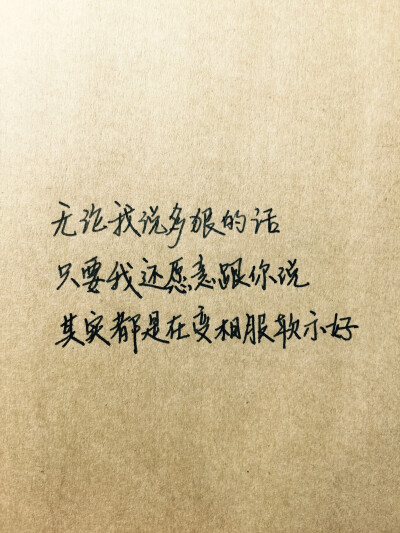 无论我说多狠的话
只要我还愿意跟你说
其实都是在变相服软示好